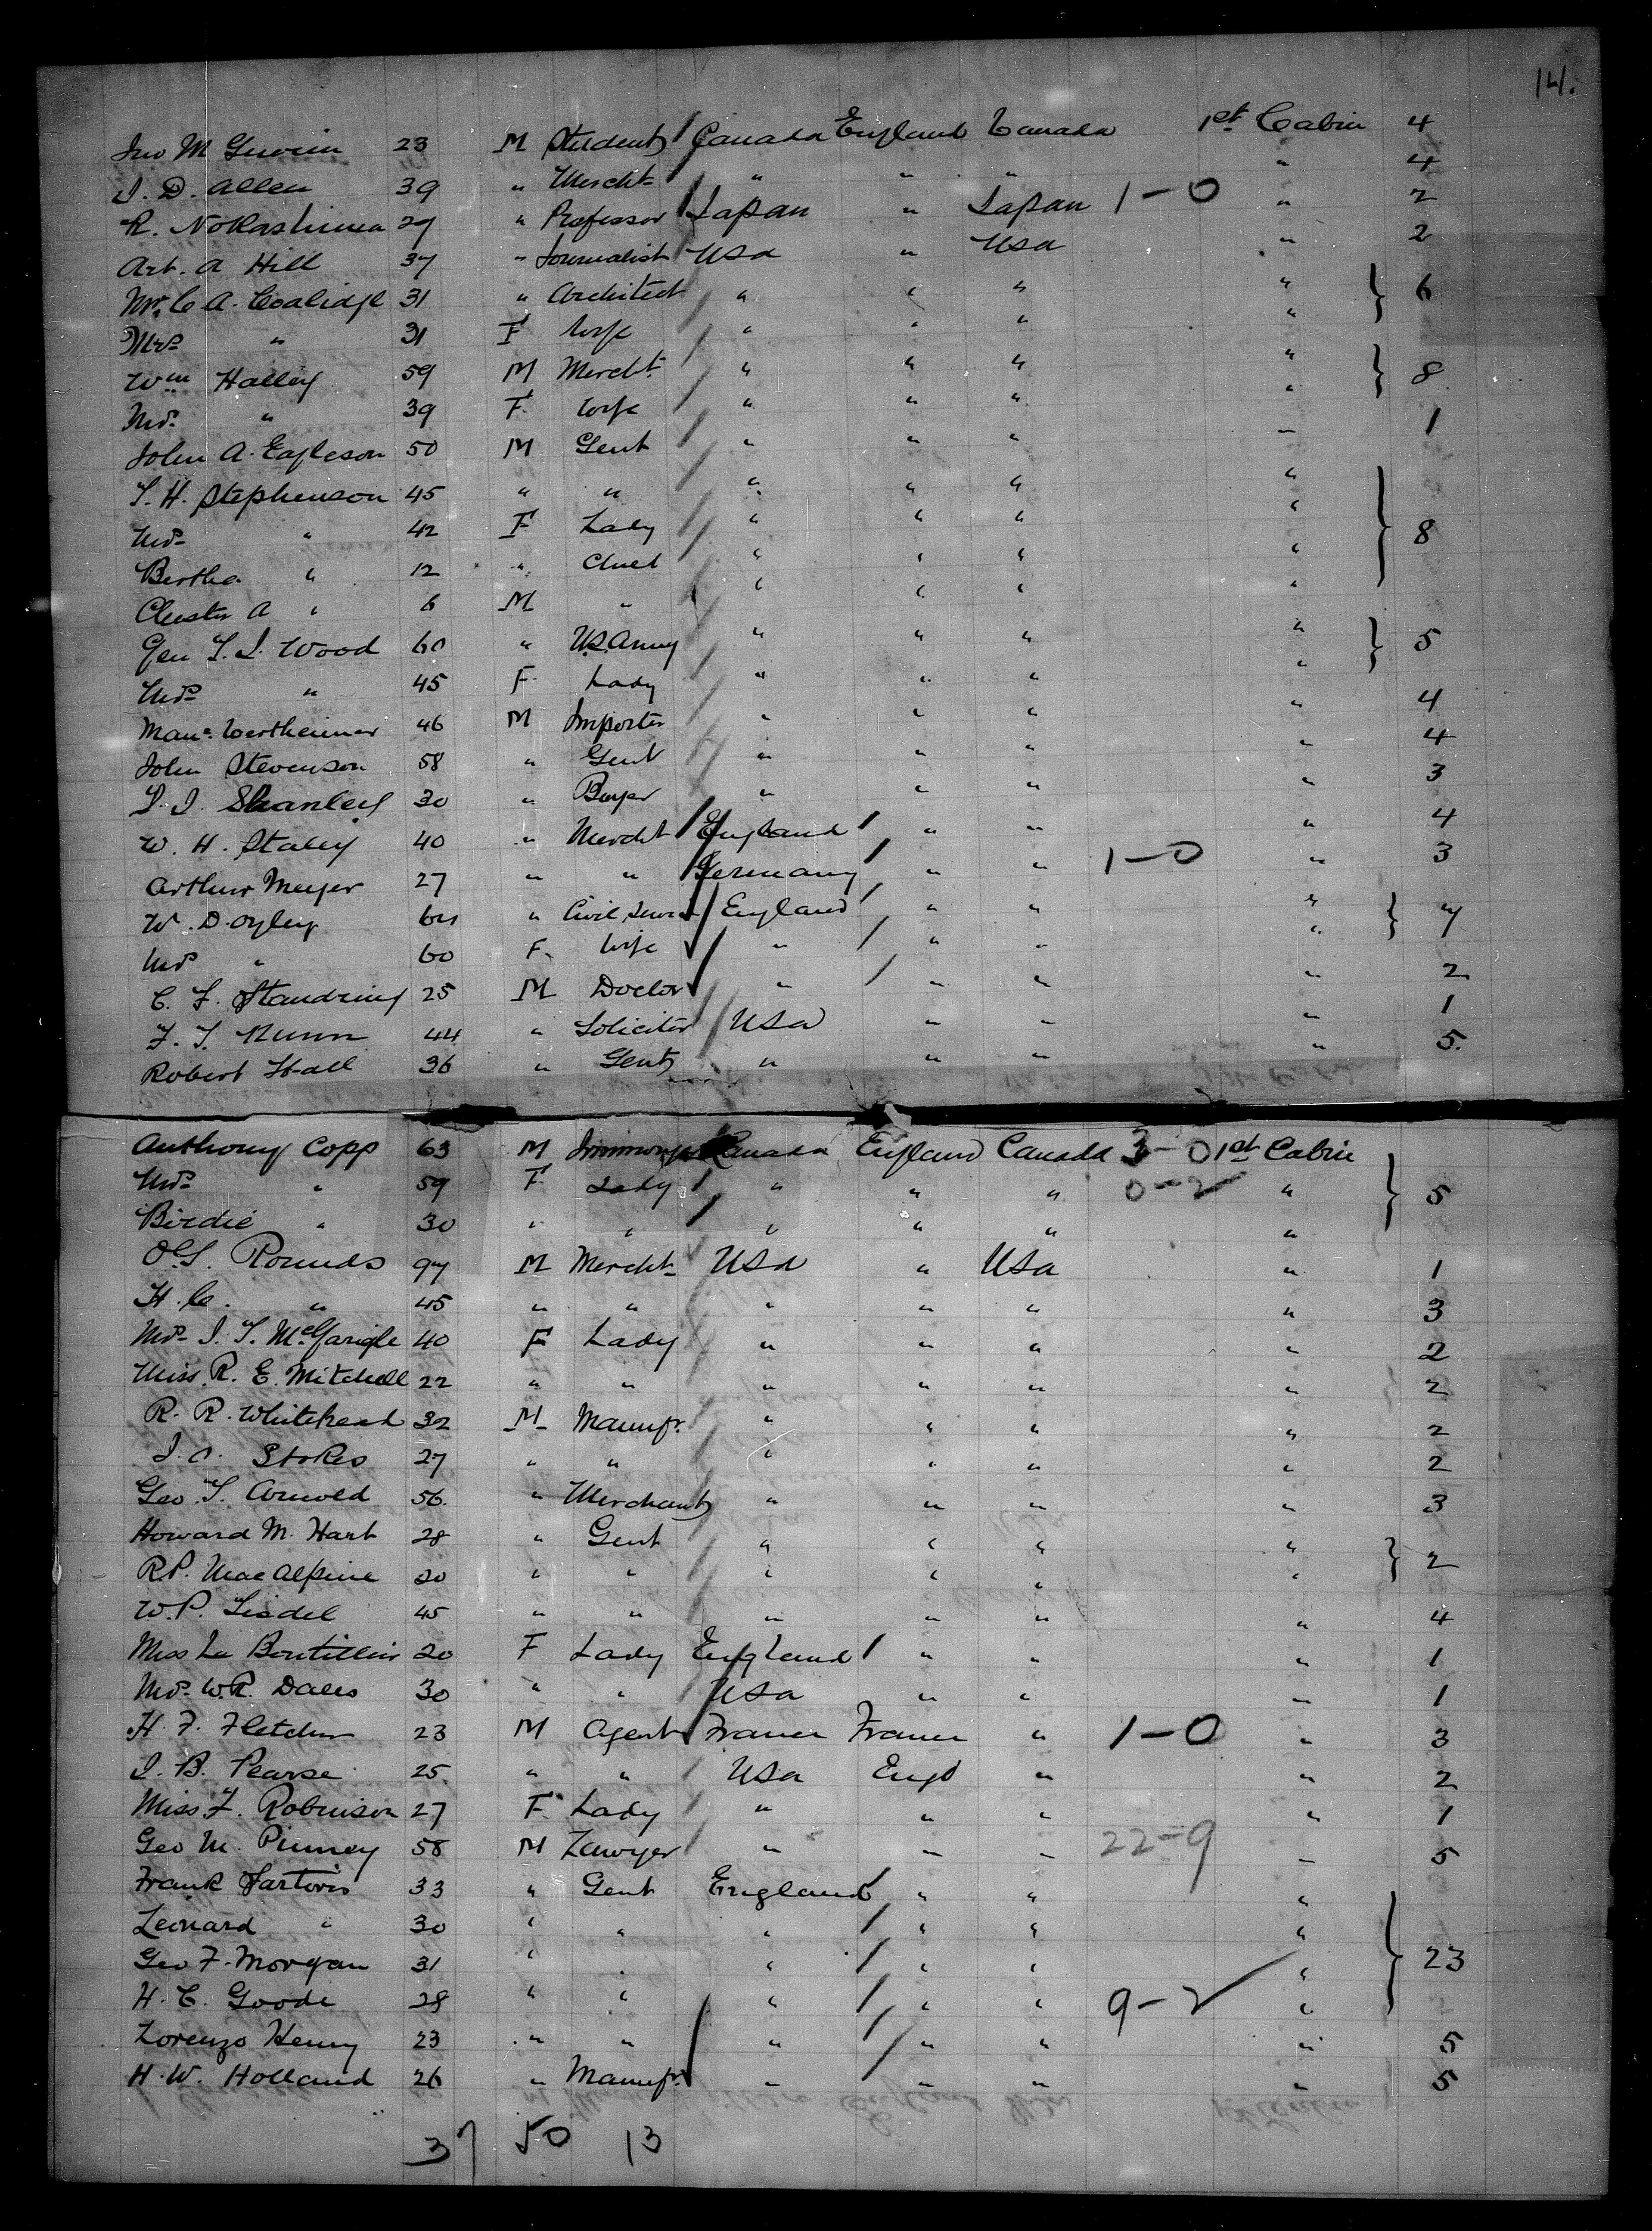 14.
Jno M Guvin 23 M Student Canada England Canada 1st Cabin 4
J. D. Allen 39 " Mercht " " " " 4
R. Nokashima 29 " Professor Japan " Japan 1-0 " 2
Art. A Hill 37 " Journalist USA " USA " 2
Mr. C A. Coolidge 31 " Architect " " " " } 6
Mrs " 31 F Wife " " " "
Wm Halley 59 M Mercht " " " " } 8
Mrs " 39 F Wife " " " "
John A. Eagleson 50 M Gent " " " " 1
T. H. Stephenson 45 " " " " " " } 8
Mrs " 42 F Lady " " " "
Bertha " 12 " Child " " " "
Chester A " 6 M " " " " "
Gen T. J. Wood 60 " U.S. Army " " " " } 5
Mrs " 45 F Lady " " " "
Man. Wertheimer 46 M Importer " " " " 4
John Stevenson 58 " Gent " " " " 4
J. J. Shanley 30 " Buyer " " " " 3
W. H. Staley 40 " Mercht England " " " 4
Arthur Meyer 27 " " Germany " " 1-0 " 3
W. D. Oyley 64 " Civil England " " " } 7
Mrs " 60 F. Wife " " " "
C. F. Standring 25 M Doctor " " " " 2
F. T. Nunn 44 " Solicitor USA " " " 1
Robert Hall 36 " Gent " " " " 5.
Anthony Copp 63 M Canada England Canada 3-0 1st Cabin } 5
Mrs " 59 F Lady " " " 0-2 "
Birdie " 30 " " " " " "
O.S. Rounds 97 M Mercht USA " USA " 1
H. C. " 45 " " " " " " 3
Mrs J. T. McGarigle 40 F Lady " " " " 2
Miss R. E. Mitchell 22 " " " " " " 2
R. R. Whitehead 32 M Manufr. " " " " 2
J. A. Stokes 27 " " " " " " 2
Geo. T. Arnold 56. " Merchant " " " " 3
Howard M. Hart 28 " Gent " " " " } 2
R.P. MacAlpine 20 " " " " " "
W. P. Lisdel 45 " " " " " " 4
Miss Le Boutillier 20 F Lady England " " " 1
Mrs W.R. Dales 30 " " USA " " " 1
H. F. Fletcher 23 M Agent France France " 1-0 " 3
J. B. Pearse 25. " " USA Engd " " 2
Miss F. Robinson 27 F Lady " " " " 1
Geo M. Pinney 58 M Lawyer " " " 22-9 " 5
Frank Sartoris 33 " Gent England " " " } 23
Leonard " 30 " " " " " "
Geo F. Morgan 31 " " " " " "
H. C. Goode 28 " " " " " 9-2 "
Lorenzo Henry 23 " " " " " " 5
H. W. Holland 26 " Manufr. " " " " 5
37 50 13